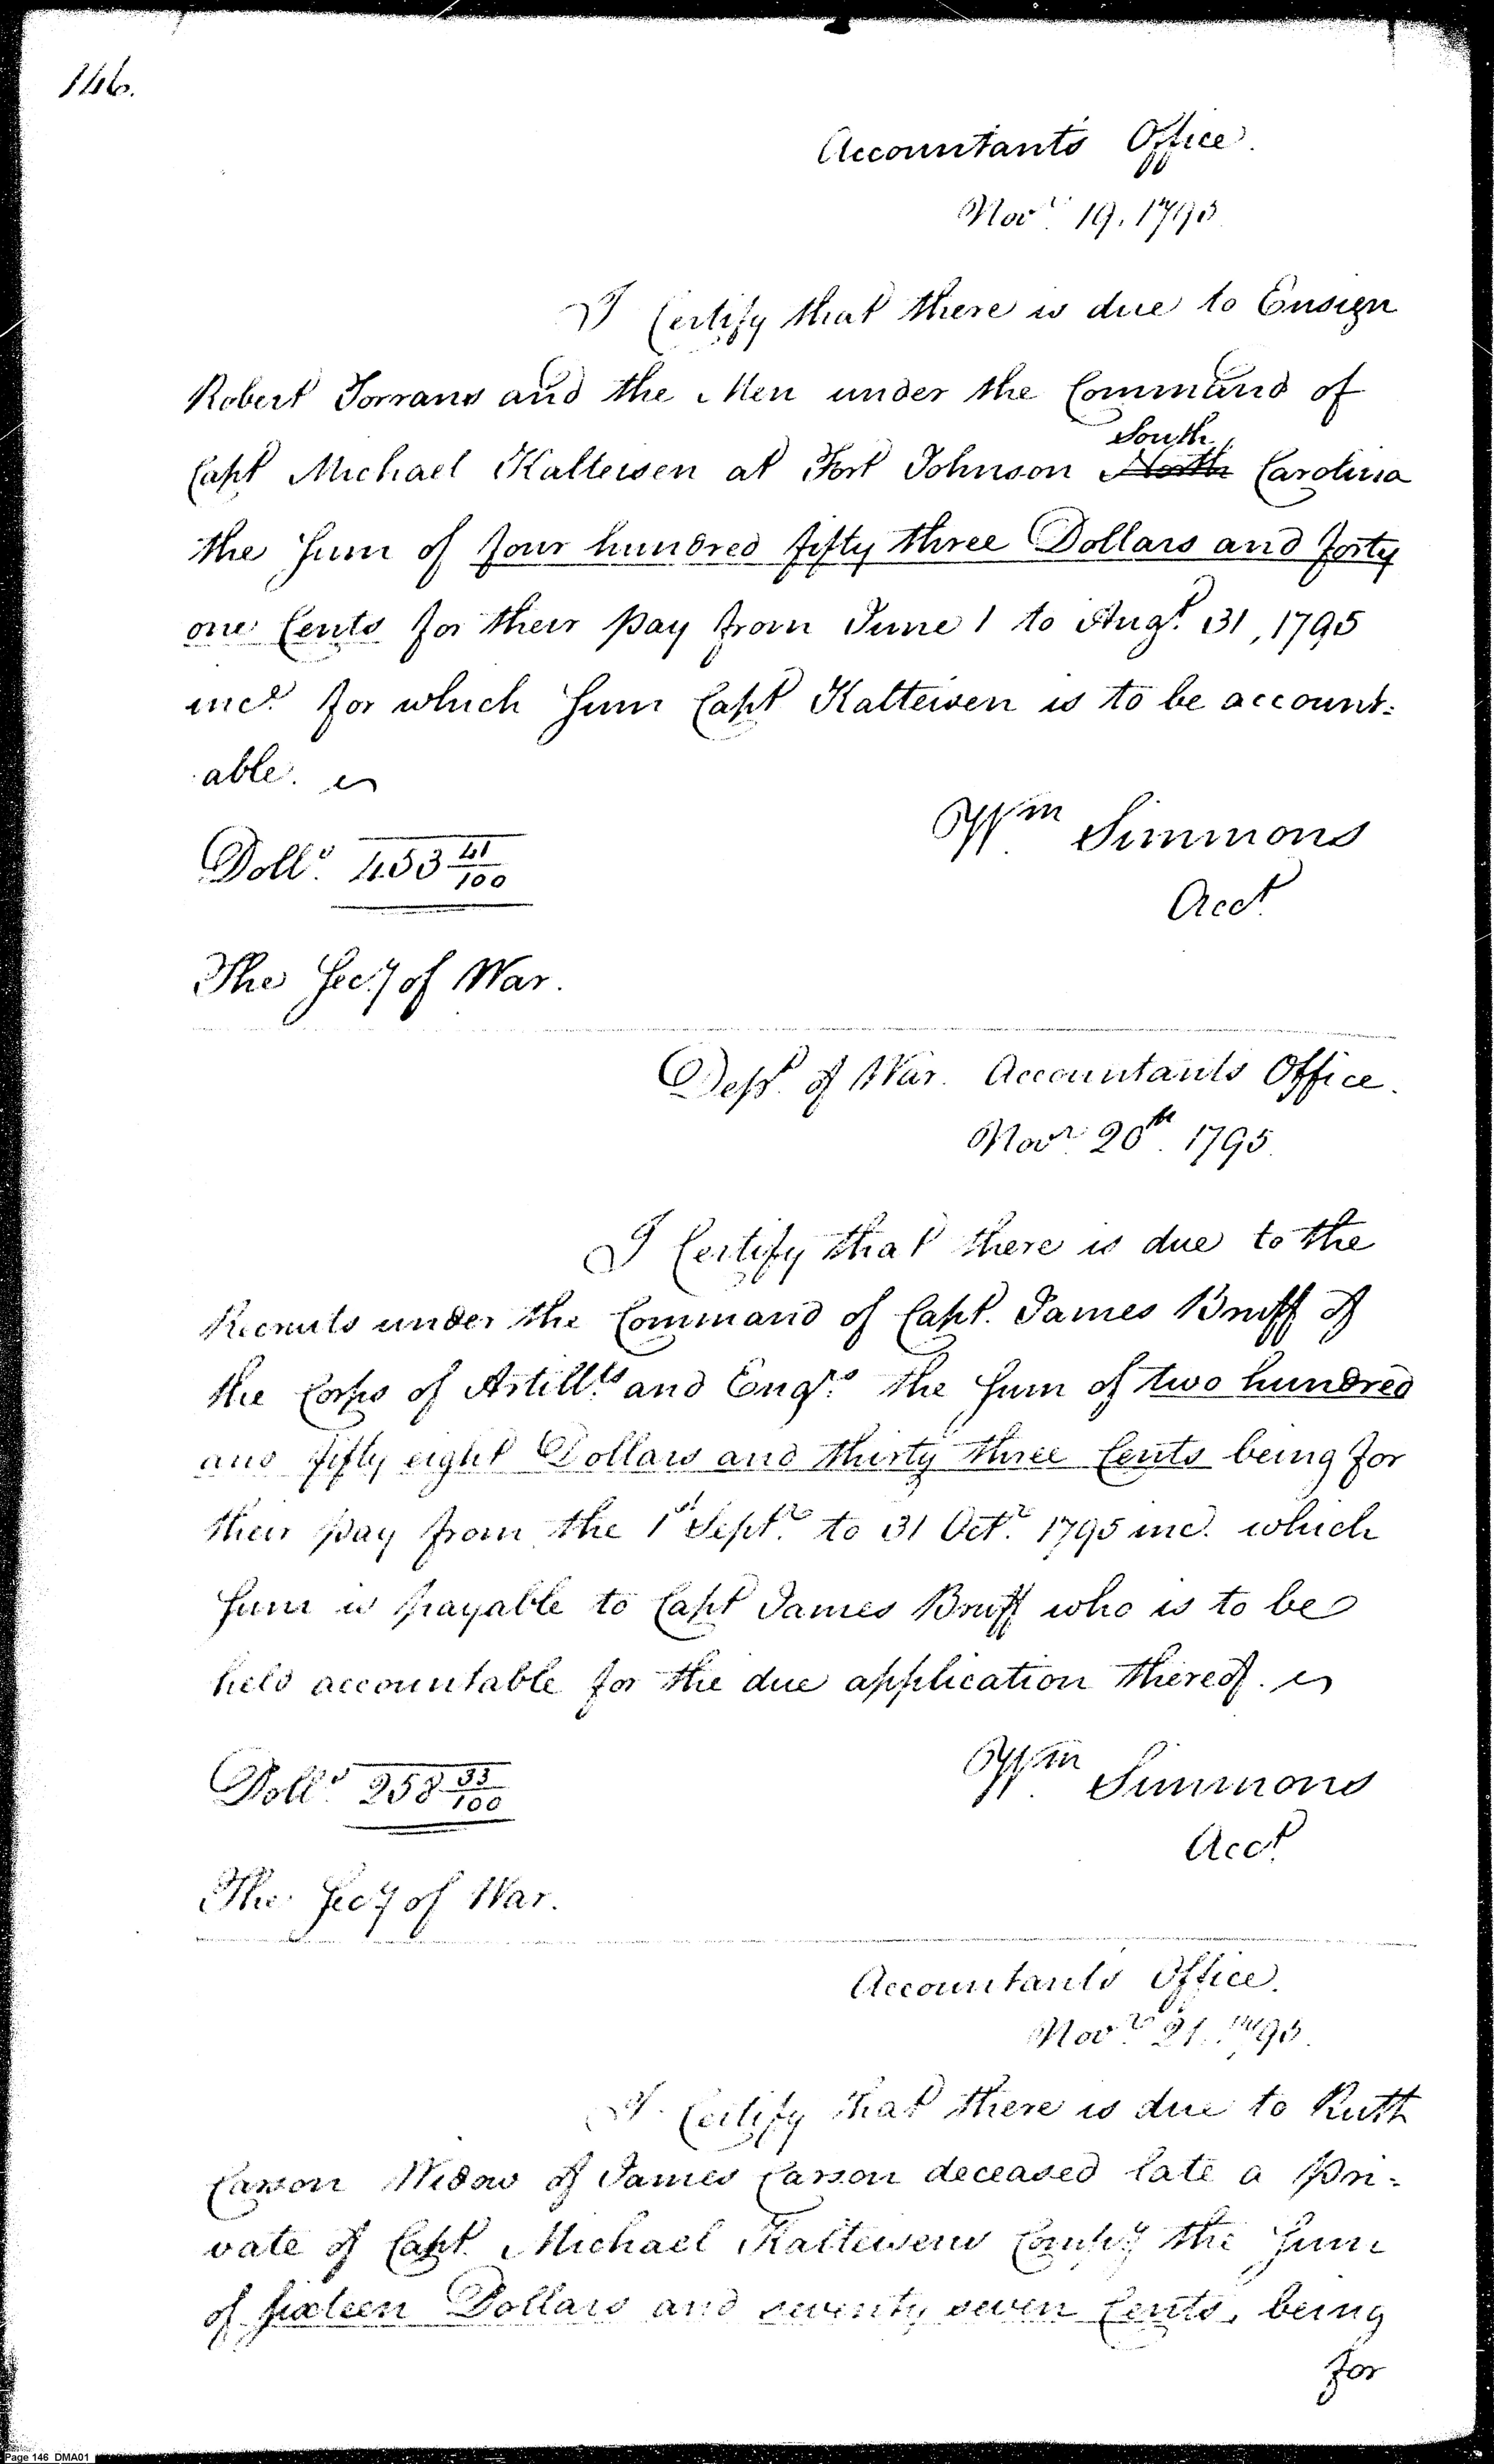 146.
Accountant's Office.
Novr. 19. 1795
I Certify that there is due to Ensign
Robert Torrans and the Men under the Command of
Capt Michael Kalteisen at Fort Johnson South North Carolina
the Sum of four hundred fifty three Dollars and forty
one Cents for their pay from June 1 to Augt. 31, 1795
incl. for which Sum Capt Kalteisen is to be account-
able.
Dolls. 453 41/100
Wm Simmons
Acct.
The Secy of War.
Dept. of War. Accountants Office.
Novr. 20th. 1795.
I Certify that there is due to the
Recruits under the Command of Capt. James Bruff of
the Corps of Artillts. and Engrs. the Sum of two hundred
and fifty eight Dollars and thirty three Cents being for
their pay from the 1st Septr. to 31 Octr. 1795 inc. which
Sum is payable to Capt James Bruff who is to be
held accountable for the due application thereof.
Dolls. 258 33/100
Wm. Simmons
Acct.
The Secy of War.
Accountants Office.
Novr. 21. 1795.
I Certify that there is due to Ruth
Carson Widow of James Carson deceased late a pri-
vate of Capt. Michael Kalteisens Compy. the Sum
of sixteen Dollars and seventy seven Cents, being
for
Page 146 DMA01